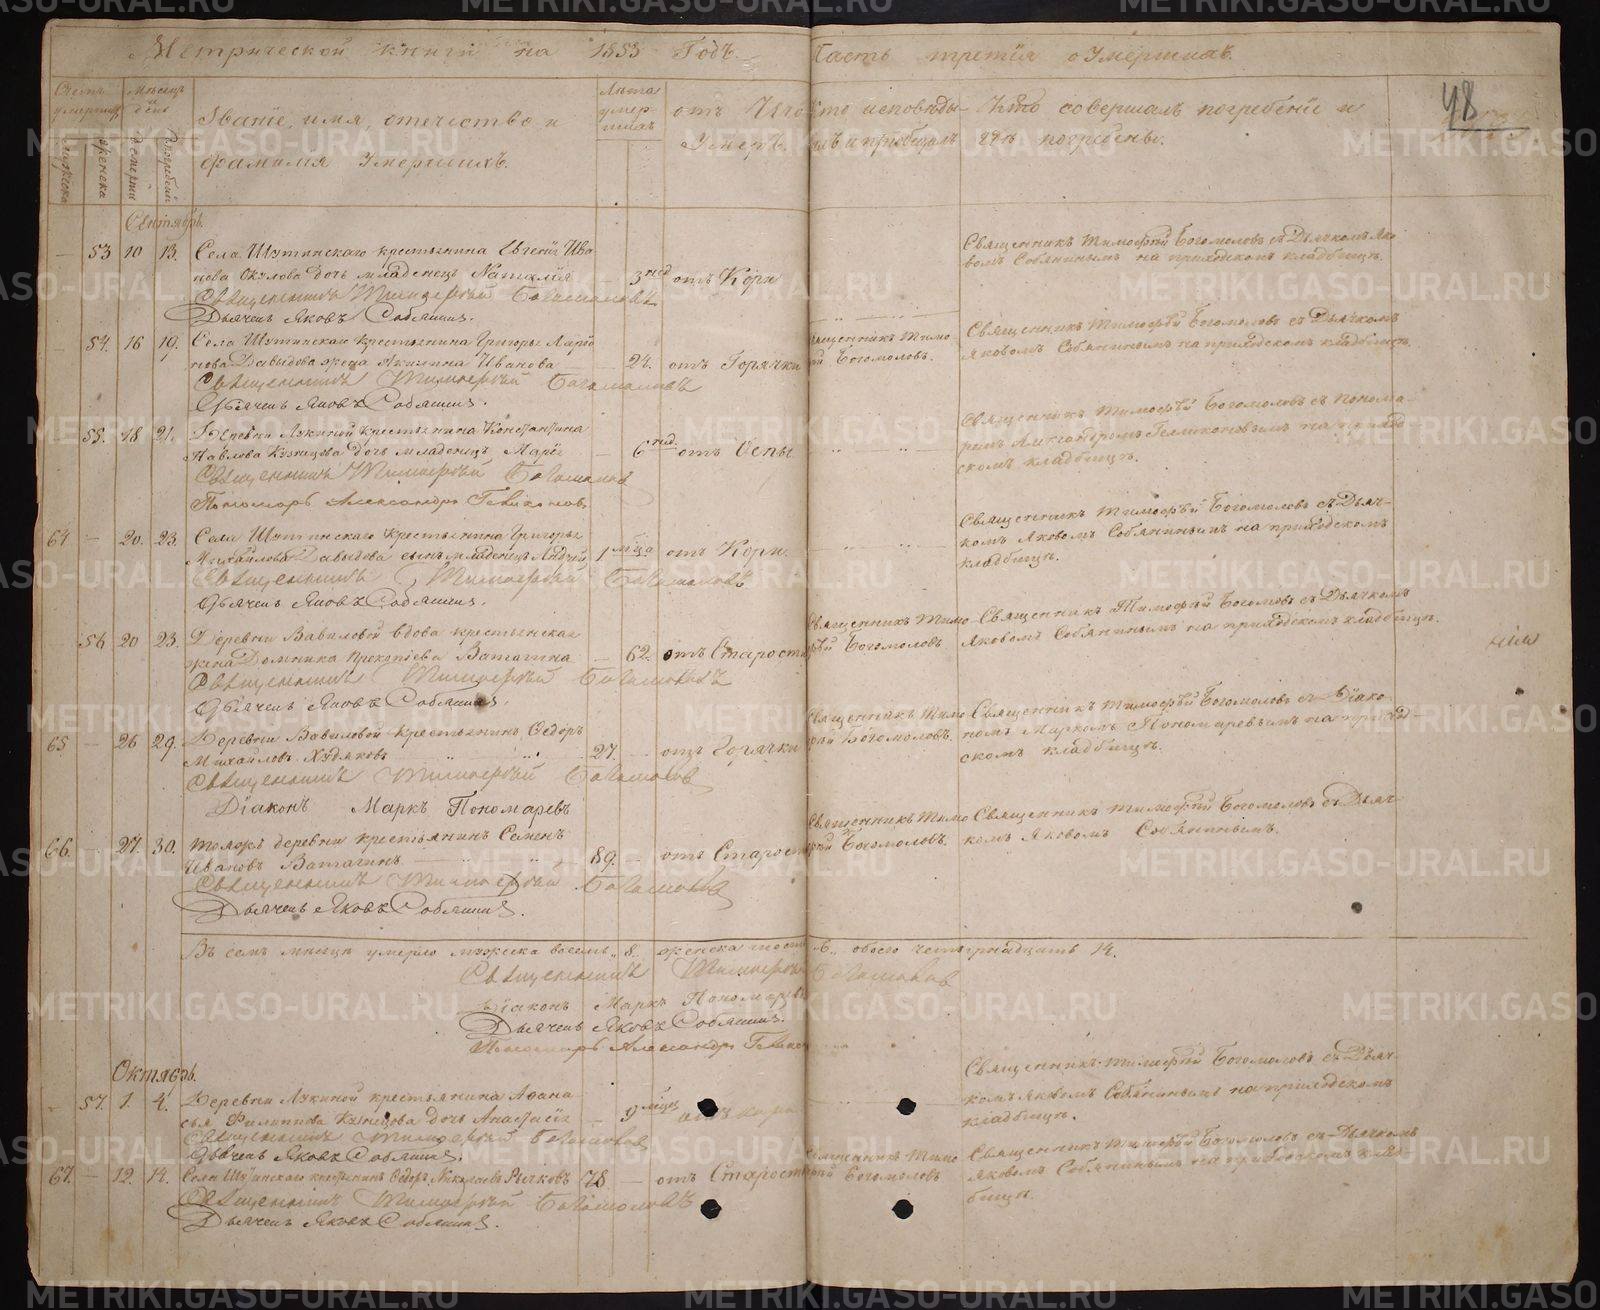 Метрической книги на 1853 Годъ. Часть третія о Умершихъ.
48
Счетъ умершихъ
Мѣсяцъ и день
Лѣта умер-шихъ
Званіе, имя, отечество и
фамилия Умершихъ.
отъ Чего
Умеръ.
Кто исповѣды-
валъ и приобщалъ
Кто совершалъ погребеніе и
гдѣ погребены.
мужеска
женска
смерти
погребенія
Сентябрь.
— 53 10 13. Села Шутинскаго крестьянина Евгенія Ива
нова Окулова дочь младенецъ Наталія — 3 нед отъ Кори
Священникъ Тимофей Богомоловъ
Дьячекъ Яковъ Собянинъ.
Священникъ Тимофѣй Богомоловъ съ Дьячкомъ Яко
вомъ Собянинымъ на приходскомъ кладбищѣ.
54. 16 19. Села Шутинскаго крестьянина Григорья Ларіо
нова Давыдова жена Акилина Иванова — 24. отъ Горячки
Священникъ Тимофей Богомоловъ
Дьячекъ Яковъ Собянинъ.
Священникъ Тимо-
фѣй Богомоловъ.
Священникъ Тимофѣй Богомоловъ съ Дьячкомъ
Яковомъ Собянинымъ на приходскомъ кладбищѣ.
55. 18 21. Деревни Лукиной крестьянина Константина
Павлова Кузнецова дочь младенецъ Марія — 6 нед. отъ Оспы
Священникъ Тимофей Богомоловъ
Пономарь Александръ
Священникъ Тимофѣй Богомоловъ съ понома-
ремъ Александромъ на приход-
скомъ кладбищѣ.
64 — 20. 23. Села Шутинскаго крестьянина Григорья
Михайлова Давыдова сынъ младенецъ Андрей 1 мѣца отъ Кори
Священникъ Тимофей Богомоловъ
Дьячекъ Яковъ Собянинъ.
Священникъ Тимофѣй Богомоловъ съ Дьяч-
комъ Яковомъ Собянинымъ на приходскомъ
кладбищѣ.
56 20 23. Деревни Вавиловой вдова крестьянская
жена Домника Прокопіева Ватагина — 62. отъ Старости
Священникъ Тимофей Богомоловъ
Дьячекъ Яковъ Собянинъ.
Священникъ Тимо-
фѣй Богомоловъ
Священникъ Тимофѣй Богомоловъ съ Дьячкомъ
Яковомъ Собянинымъ на приходскомъ кладбищѣ.
65 — 26 29. Деревни Вавиловой крестьянинъ Ѳедоръ
Михайловъ Худяковъ 27. — отъ Горячки
Священникъ Тимофей Богомоловъ
Діаконъ Маркъ Пономаревъ
Священникъ Тимо
фѣй Богомоловъ.
Священникъ Тимофѣй Богомоловъ съ Діако
номъ Маркомъ Пономаревымъ на приход-
скомъ кладбищѣ.
66. — 27. 30. Тояжъ деревни крестьянинъ Семенъ
Ивановъ Ватагинъ — 89. — отъ Старости
Священникъ Тимофей Богомоловъ
Дьячекъ Яковъ Собянинъ.
Священникъ Тимо
фѣй Богомоловъ.
Священникъ Тимофѣй Богомоловъ съ Дьяч-
комъ Яковомъ Собянинымъ.
Въ семъ мѣсяцѣ умерло мужеска восемь „ 8. женска шесть 6„ обоего четырнадцать 14.
Священникъ Тимофей Богомоловъ
Діаконъ Маркъ Пономаревъ
Дьячекъ Яковъ Собянинъ.
Пономарь Александръ
Октябрь.
— 57. 1. 4. Деревни Лукиной крестьянина Афана
сья Филиппова Кузнецова дочь Анастасія — 9 мѣцев отъ кори
Священникъ Тимофей Богомоловъ
Дьячекъ Яковъ Собянинъ.
Священникъ Тимофѣй Богомоловъ съ Дьяч-
комъ Яковомъ Собянинымъ на приходскомъ
кладбищѣ.
67. — 12. 14. Села Шутинскаго крестьянинъ Ѳедоръ Николаевъ Рычковъ 78 — отъ Старости
Священникъ Тимофей Богомоловъ
Дьячекъ Яковъ Собянинъ.
Священникъ Тимо
фѣй Богомоловъ
Священникъ Тимофѣй Богомоловъ съ Дьячкомъ
Яковомъ Собянинымъ на приходскомъ клад-
бищѣ.
METRIKI.GASO-URAL.RU